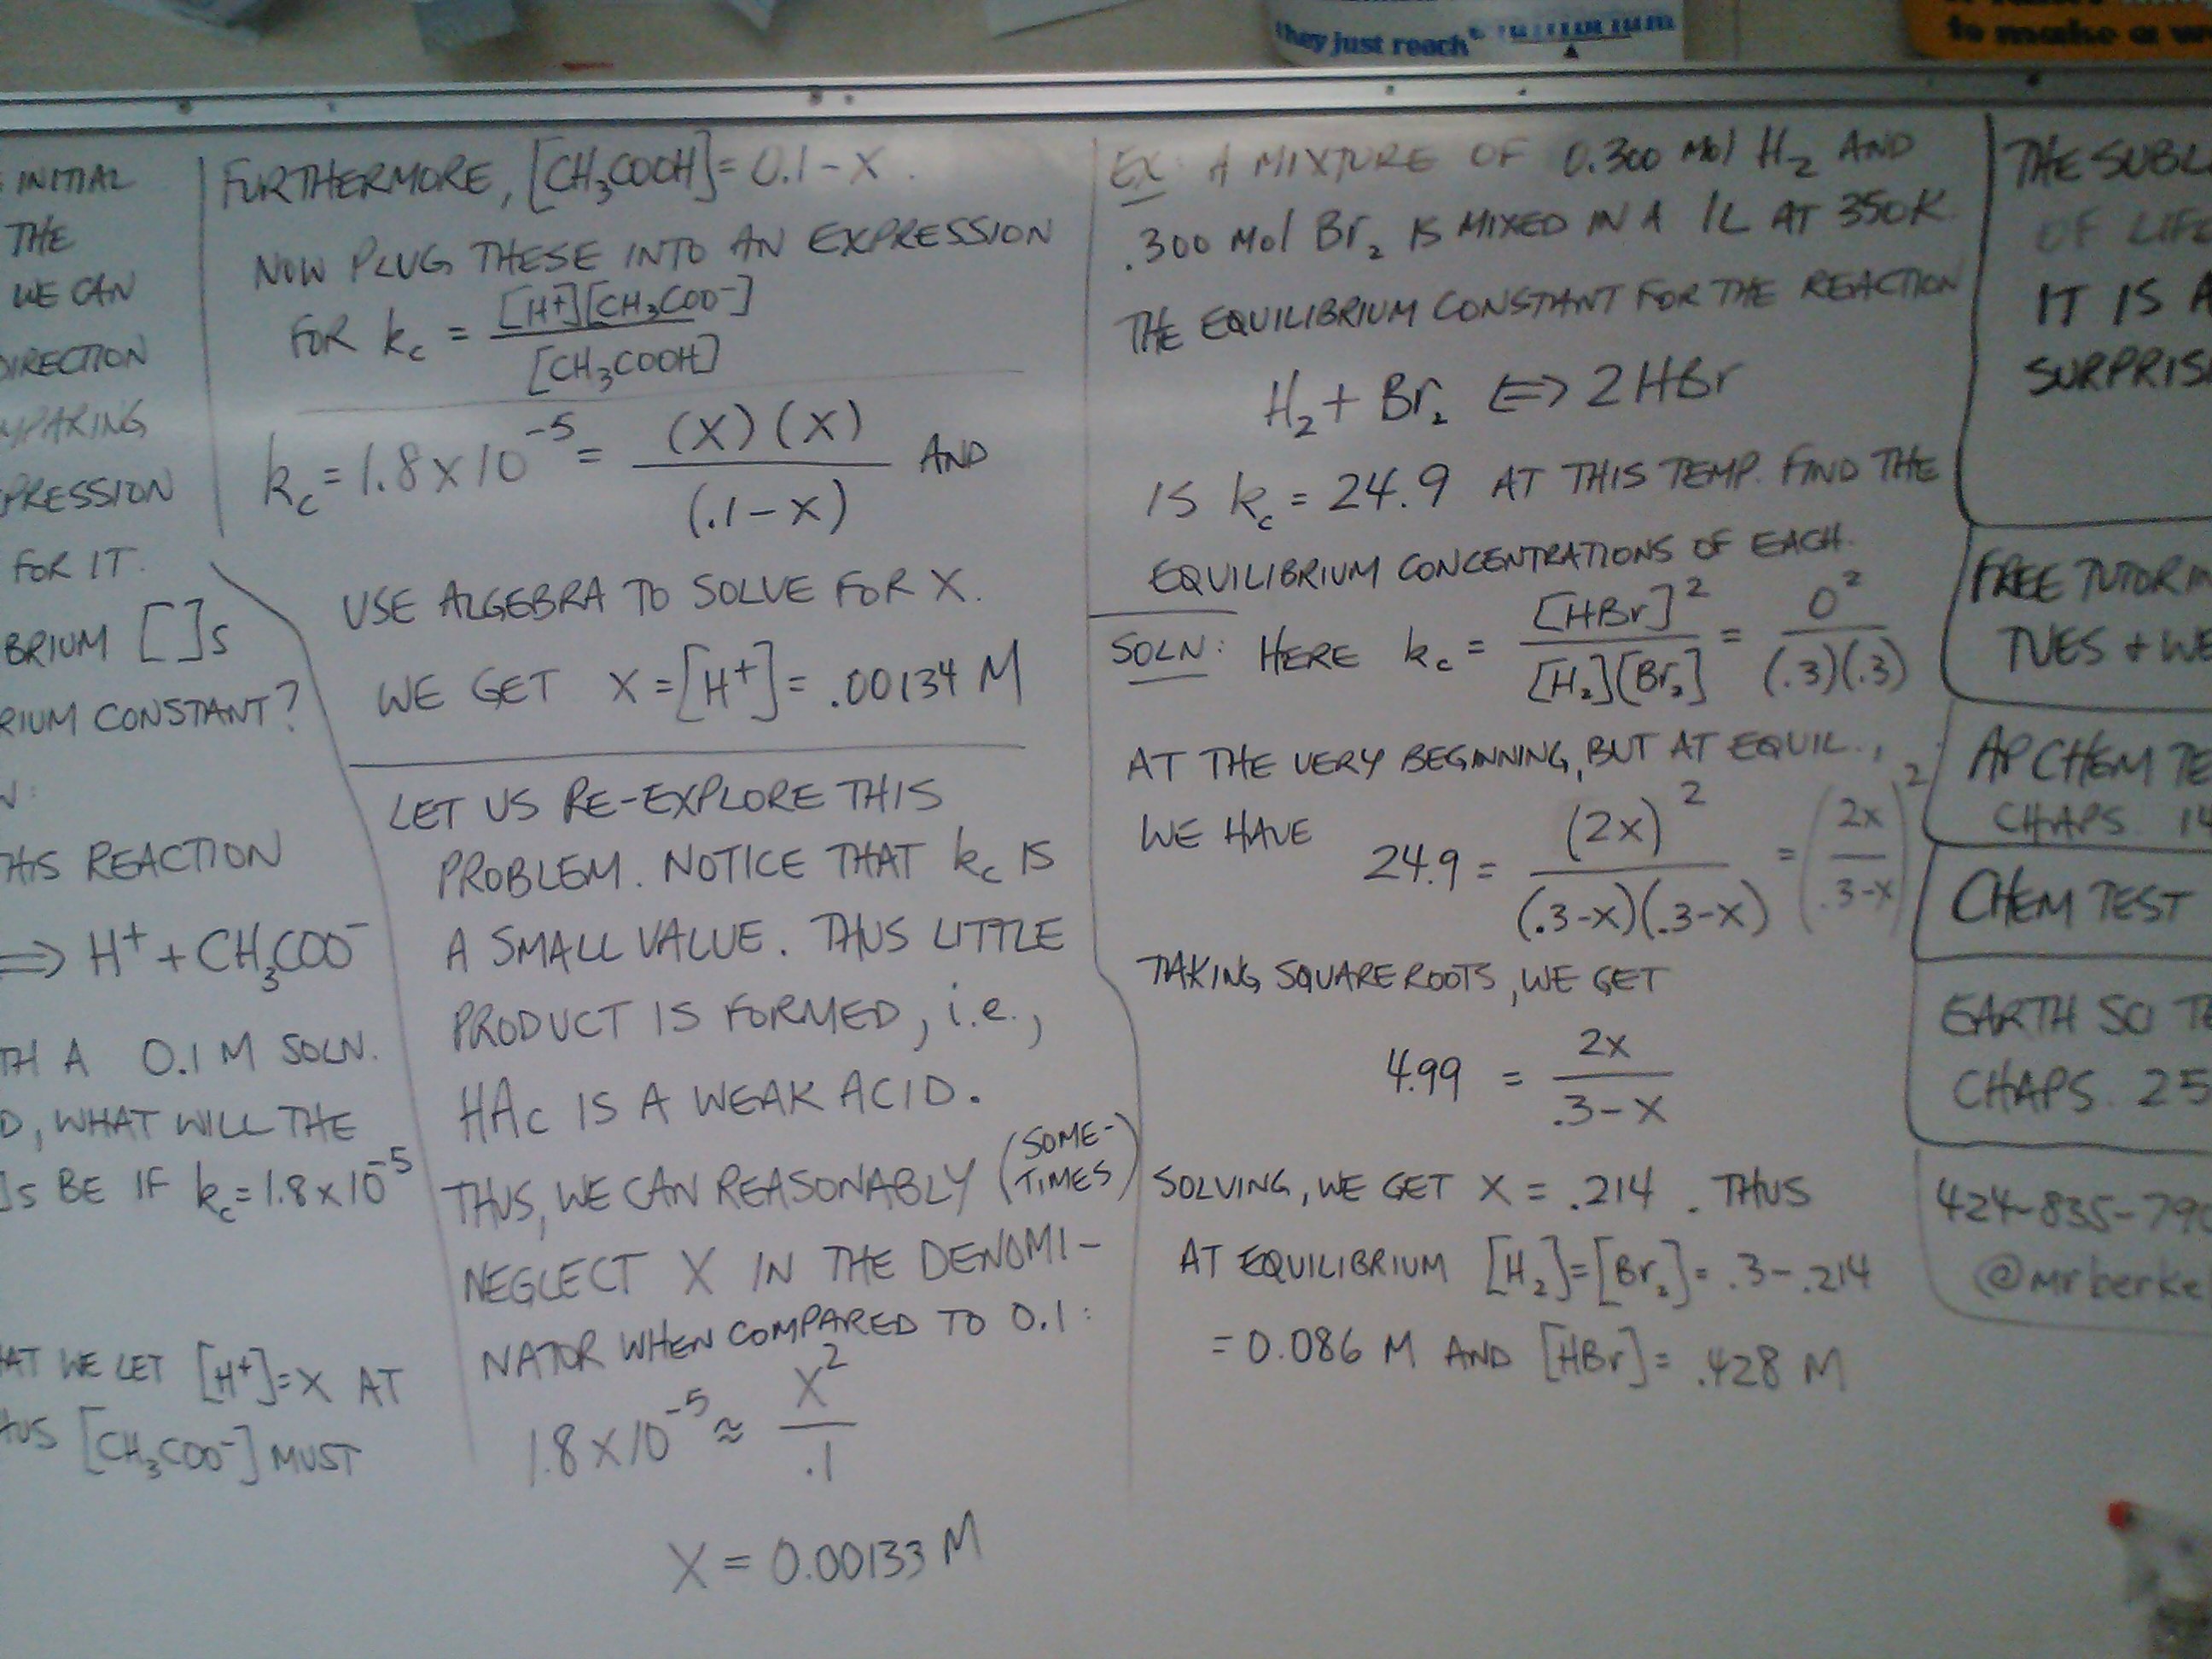 they just reach
to make a
INITIAL
THE
WE CAN
DIRECTION
MPARING
PRESSION
FOR IT.
BRIUM [ ]s
RIUM CONSTANT?
N:
THIS REACTION
⇒ H⁺ + CH₃COO⁻
TH A 0.1 M SOLN.
D, WHAT WILL THE
]s BE IF k_c = 1.8 x 10⁻⁵
AT WE LET [H⁺] = X AT
HUS [CH₃COO⁻] MUST
FURTHERMORE, [CH₃COOH] = 0.1 - X.
NOW PLUG THESE INTO AN EXPRESSION
FOR k_c = [H⁺][CH₃COO⁻] / [CH₃COOH]
k_c = 1.8 x 10⁻⁵ = (X)(X) / (.1 - X) AND
USE ALGEBRA TO SOLVE FOR X.
WE GET X = [H⁺] = .00134 M
LET US RE-EXPLORE THIS
PROBLEM. NOTICE THAT k_c IS
A SMALL VALUE. THUS LITTLE
PRODUCT IS FORMED, i.e.,
HAc IS A WEAK ACID.
THUS, WE CAN REASONABLY (SOME-
TIMES)
NEGLECT X IN THE DENOMI-
NATOR WHEN COMPARED TO 0.1:
1.8 x 10⁻⁵ ≈ X² / .1
X = 0.00133 M
EX: A MIXTURE OF 0.300 Mol H₂ AND
.300 Mol Br₂ IS MIXED IN A 1L AT 350K.
THE EQUILIBRIUM CONSTANT FOR THE REACTION
H₂ + Br₂ ⇔ 2HBr
IS k_c = 24.9 AT THIS TEMP. FIND THE
EQUILIBRIUM CONCENTRATIONS OF EACH.
SOLN: HERE k_c = [HBr]² / [H₂][Br₂] = 0² / (.3)(.3)
AT THE VERY BEGINNING, BUT AT EQUIL.,
WE HAVE 24.9 = (2x)² / (.3-x)(.3-x) = (2x / .3-x)²
TAKING SQUARE ROOTS, WE GET
4.99 = 2x / .3-x
SOLVING, WE GET X = .214. THUS
AT EQUILIBRIUM [H₂] = [Br₂] = .3 - .214
= 0.086 M AND [HBr] = .428 M
THE SUBL
OF LIFE
IT IS A
SURPRIS
FREE TUTORIN
TUES + WE
AP CHEM TE
CHAPS. 14
CHEM TEST
EARTH SCI TE
CHAPS. 25
424-835-790
@mrberke